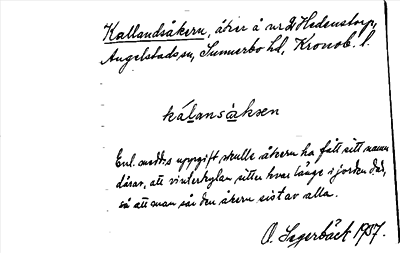 Kallandsåkern, åker å nr 2 Hedenstorp,
Angelstads sn, Sunnerbo hd, Kronob. l.
kálansàksen
Enl. medd:s uppgift skulle åkern ha fått sitt namn
därav, att vinterkylan sitter kvar länge i jorden där,
så att man sår den åkern sist av alla.
O. Lagerbäck 1937.